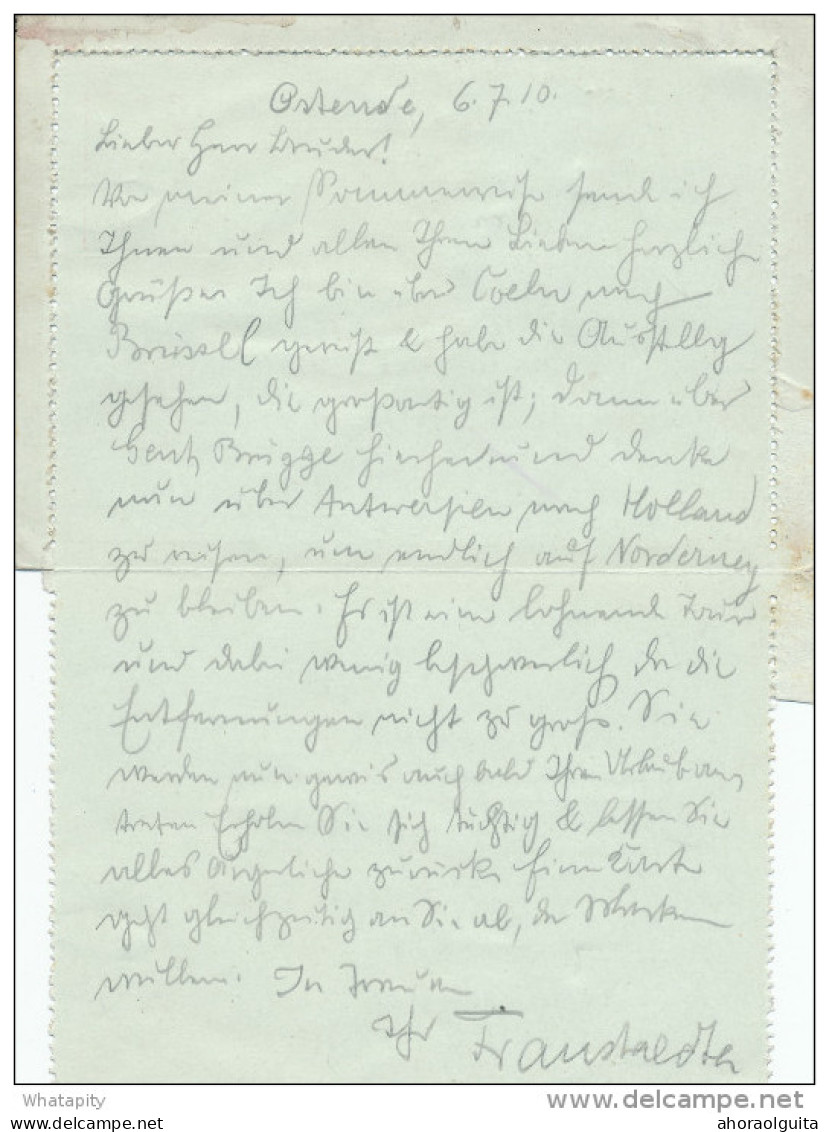 Ostende, 6.7.10.
Lieber Herr Bruder!
Von meiner Sommerreise sende ich
Ihnen und allen Ihren Lieben herzliche
Grüße. Ich bin über Coeln nach
Brüssel gereist & habe die Ausstellg
gesehen, die großartig ist; dann über
Gent, Brügge hierher und denke
nun über Antwerpen nach Holland
zu reisen, um endlich auf Norderney
zu bleiben. Es ist eine lohnende Tour
und dabei wenig beschwerlich da die
Entfernungen nicht zu groß. Sie
werden nun gewis auch bald Ihren Urlaub an
treten Erholen Sie sich tüchtig & lassen Sie
alles Ärgerliche zurück. Eine Karte
geht gleichzeitig an Sie ab, der Marken
willen. In Treuen
Ihr
Whatapity
www.delcampe.net
ahoraolguita